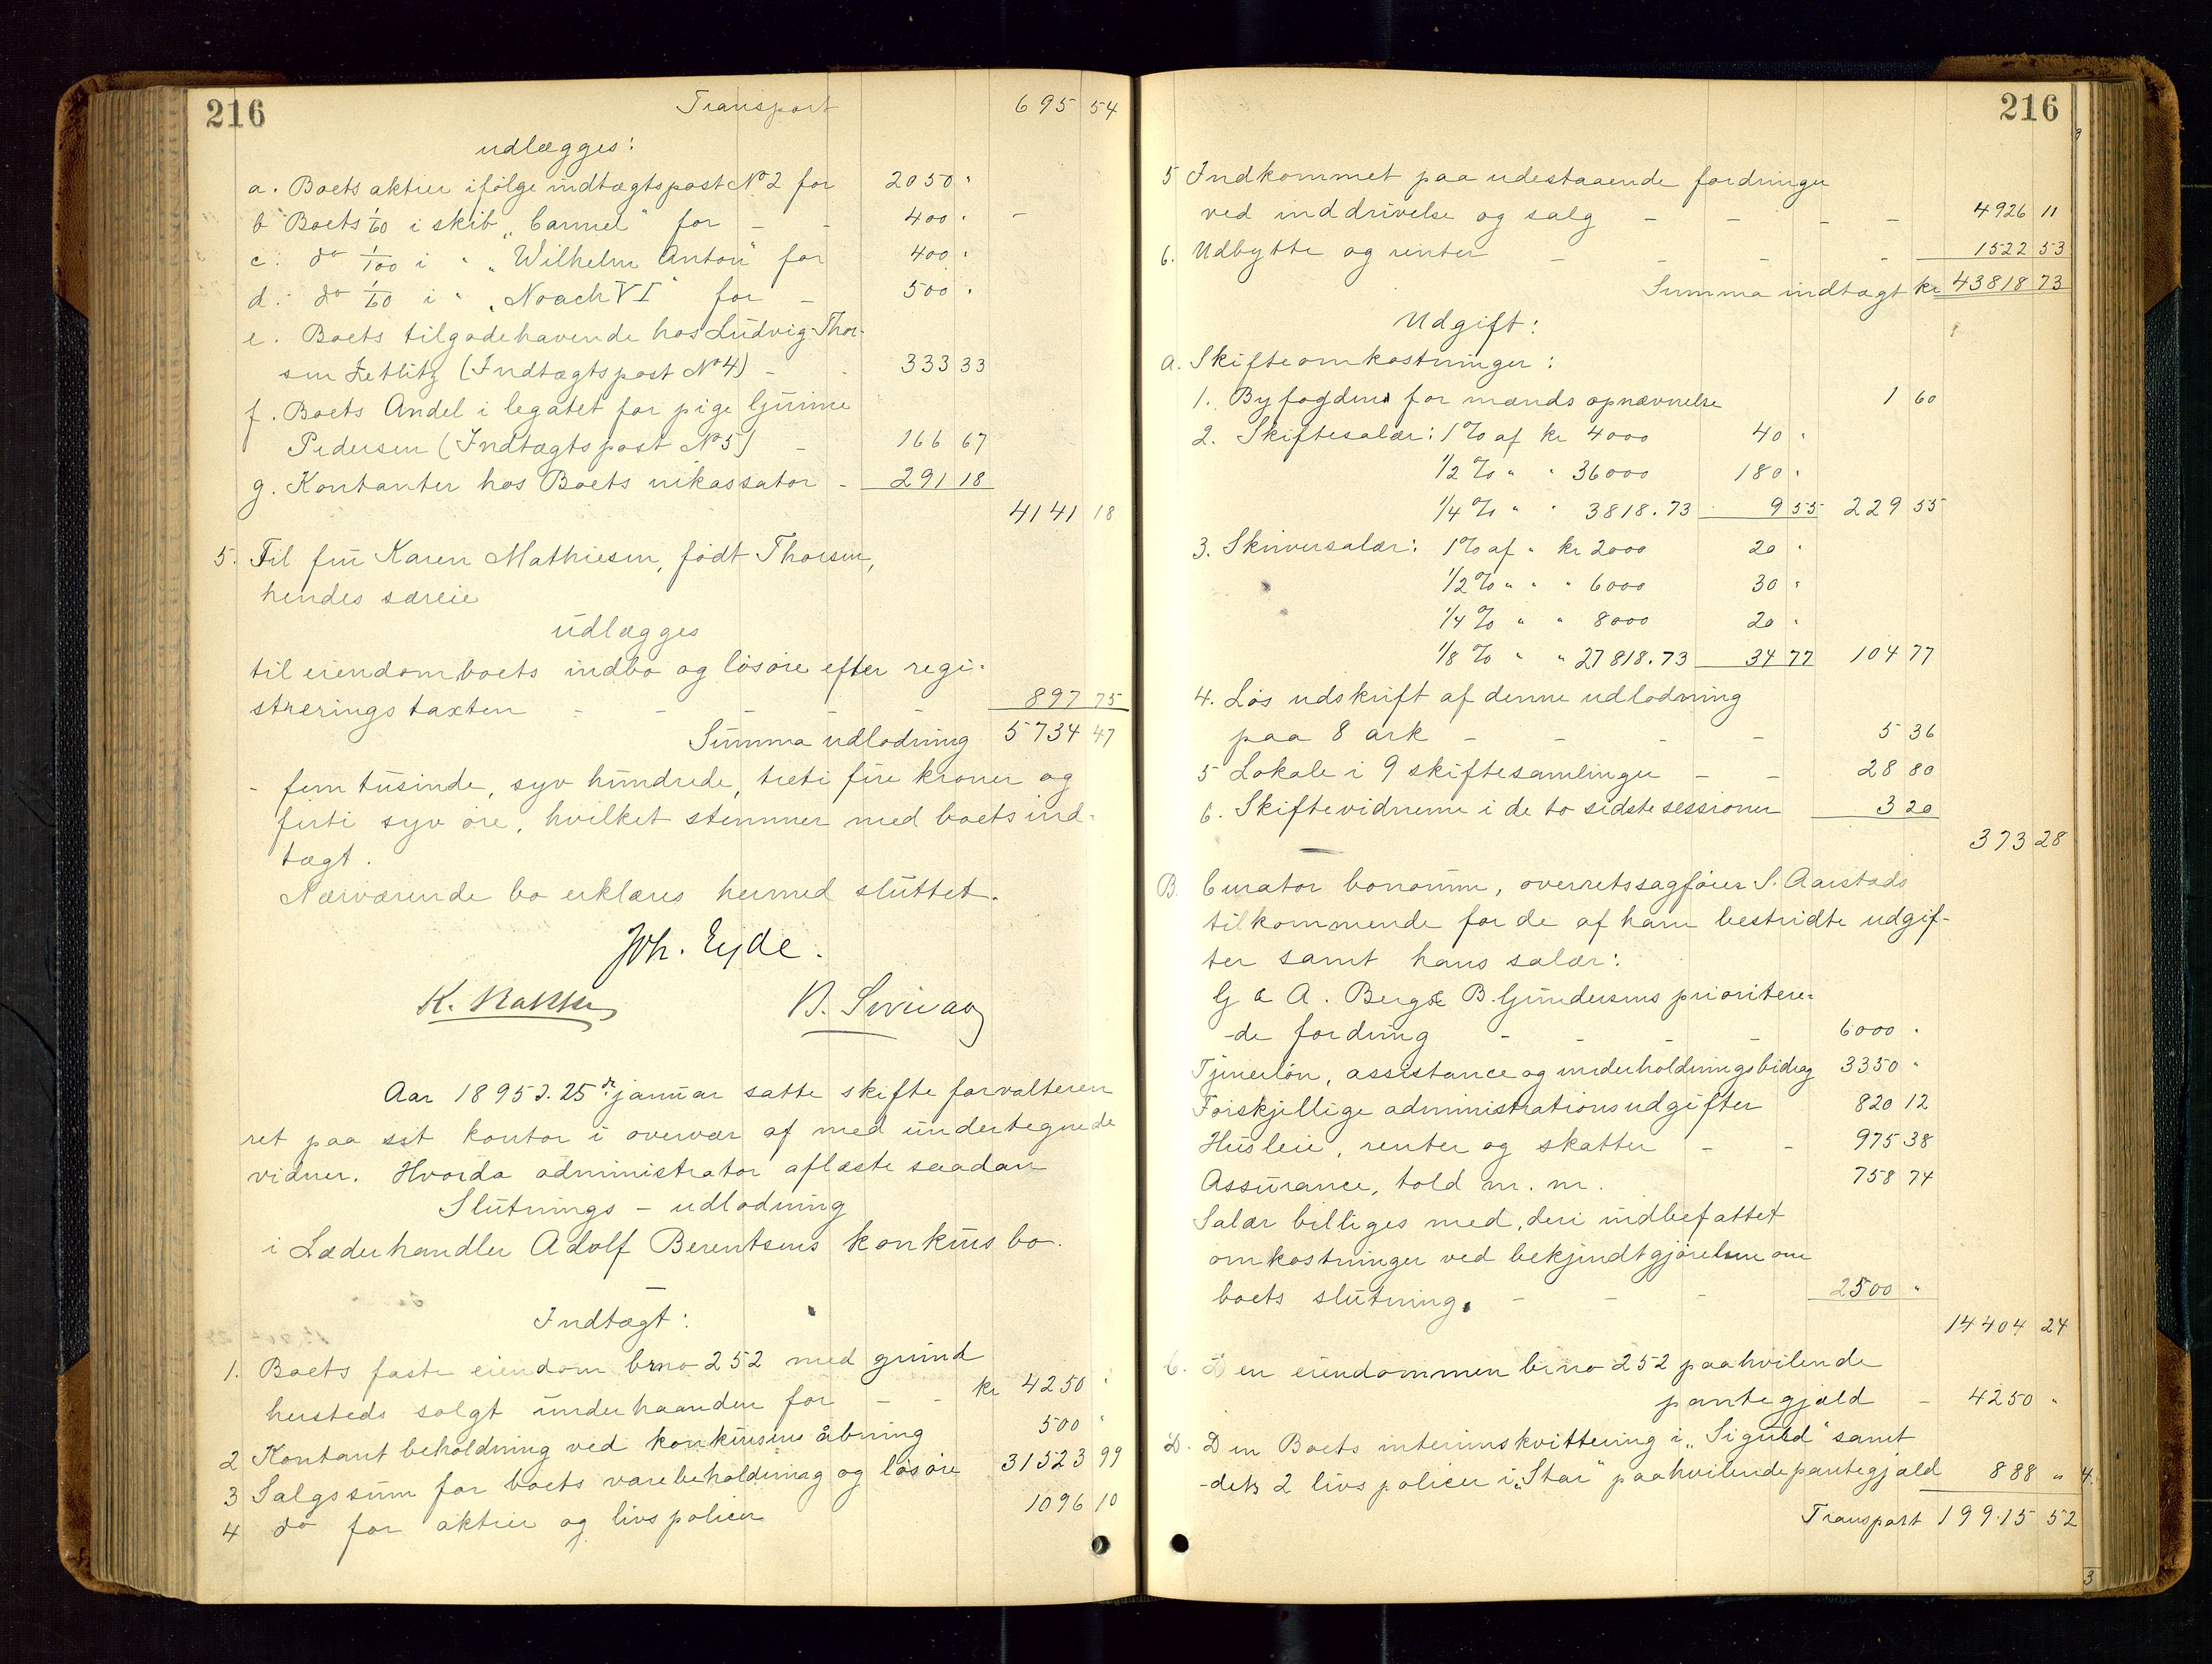 216 Transport 695 54
udlægges:
a. Boets aktier ifölge indtægtspost No 2 for 2050 "
b Boets 1/60 i skib „Carmel" for - - 400 " -
c. do 1/100 i " „Wilhelm Anton" for 400 "
d. do 1/60 i " „Noach VI" for - 500 "
e. Boets tilgodehavende hos Ludvig Thor-
sen Zetlitz (Indtægtspost No 4) - - 333 33
f. Boets Andel i legatet for pige Gurine
Pedersen (Indtægtspost No 5) - 166 67
g. Kontanter hos Boets inkassator - 291 18
4141 18
5. Til fru Karen Mathiesen, født Thorsen,
hendes særeie
udlægges
til eiendom boets indbo og lösöre efter regi-
streringstaxten - - - - - 897 75
Summa udlodning 5734 47
- fem tusinde, syv hundrede, treti fire kroner og
firti syv öre, hvilket stemmer med boets ind-
tægt.
Nærværende bo erklæres hermed sluttet.
Joh. Eyde.
K. Bakke
Aar 1895 d. 25de januar satte skifteforvalteren
ret paa sit kontor i overvær af med undertegnede
vidner. Hvorda administrator aflæste saadan
Slutnings - udlodning
i Læderhandler Adolf Berentsens konkursbo.
Indtægt:
1. Boets faste eiendom brno 252 med grund
hersteds solgt underhaanden for - - kr 4250 "
2 Kontant beholdning ved konkursens åbning 500 "
3 Salgssum for boets varebeholdning og lösöre 31523 99
4 do for aktier og livspolicer 1096 10
216
5 Indkommet paa udestaaende fordringer
ved inddrivelse og salg - - - - 4926 11
6. Udbytte og renter - - - - 1522 53
Summa indtægt kr 43818 73
Udgift:
a. Skifteomkostninger:
1. Byfogden for mænds opnævnelse 1 60
2. Skiftesalær: 1% af kr 4000 40 "
1/2 % " " 36000 180 "
1/4 % " " 3818.73 9 55 229 55
3. Skriversalær: 1% af " kr 2000 20 "
1/2 % " " " 6000 30 "
1/4 % " " 8000 20 "
1/8 % " " 27818.73 34 77 104 77
4. Lös udskrift af denne udlodning
paa 8 ark - - - - 5 36
5 Lokale i 9 skiftesamlinger - - 28 80
6. Skiftevidnerne i de to sidste sessioner 3 20
373 28
B. Curator bonorum, overretssagförer S. Aarstads
tilkommende for de af ham bestridte udgif-
ter samt hans salær:
G & A. Berg & B. Gundersens prioritere-
-de fordring - - - - 6000 "
Tjenerlön, assistance og underholdningsbidrag 3350 "
Forskjellige administrationsudgifter 820 12
Husleie, renter og skatter - - 975 38
Assurance, told m. m. 758 74
Salær billiges med, deri indbefattet
omkostninger ved bekjendtgjörelserne om
boets slutning. - - - 2500 "
14404 24
C. Den eiendommen brno 252 paahvilende
pantegjæld - 4250 "
D. Den Boets interimskvittering i „Sigurd" samt
-dets 2 livspolicer i „Star" paahvilende pantegjæld 888 " 4.
Transport 199.15 52
3